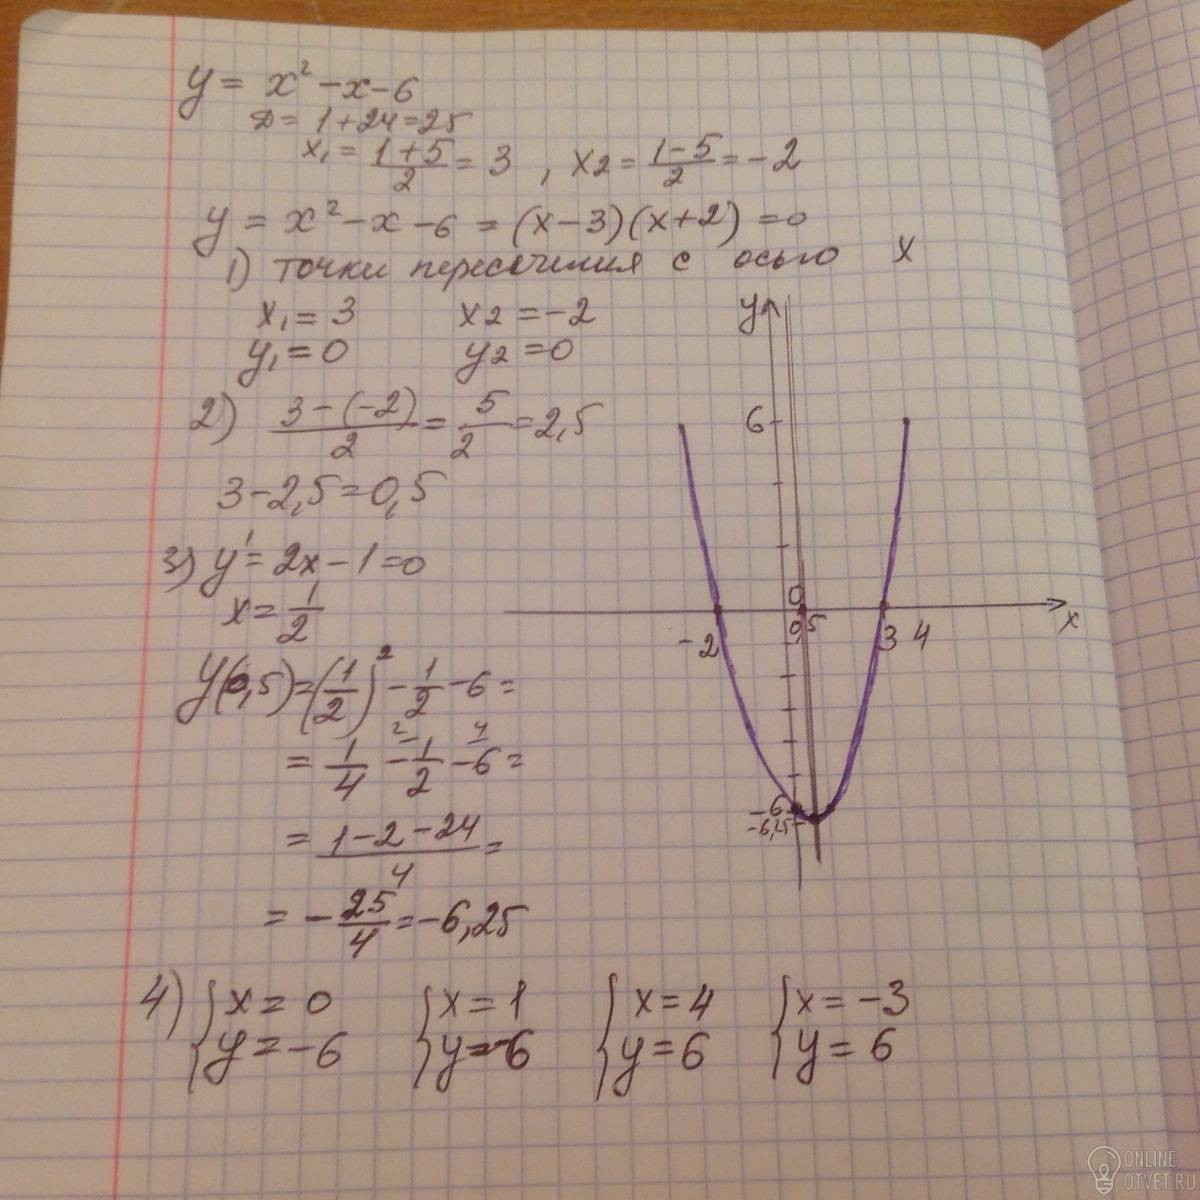 y = x² - x - 6
D = 1 + 24 = 25
x₁ = (1+5)/2 = 3 , x₂ = (1-5)/2 = -2
y = x² - x - 6 = (x-3)(x+2) = 0
1) точки пересечения с осью x
x₁ = 3 x₂ = -2
y₁ = 0 y₂ = 0
2) (3-(-2))/2 = 5/2 = 2,5
3 - 2,5 = 0,5
3) y' = 2x - 1 = 0
x = 1/2
y(0,5) = (1/2)² - 1/2 - 6 =
= 1/4 - ²1/2 - ⁴6 =
= (1-2-24)/4 =
= -25/4 = -6,25
4) { x = 0 { x = 1 { x = 4 { x = -3
y = -6 y = -6 y = 6 y = 6
y
6
0
x
-2
0,5
3 4
-6
-6,25
ONLINE
OTVET.RU